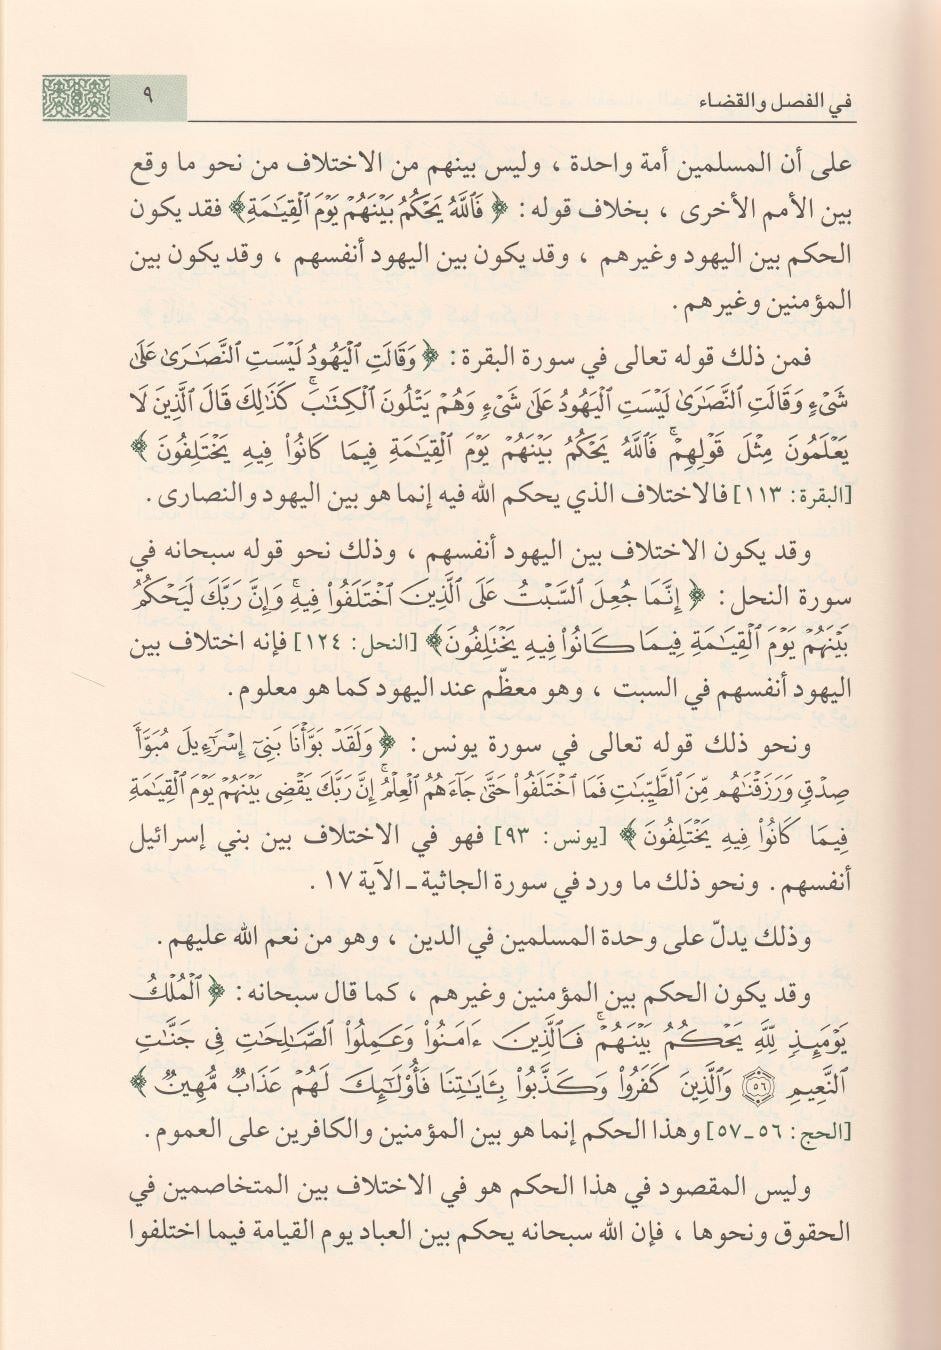 في الفصل والقضاء
٩
على أن المسلمين أمة واحدة ، وليس بينهم من الاختلاف من نحو ما وقع
بين الأمم الأخرى ، بخلاف قوله : ﴿ فَٱللَّهُ يَحۡكُمُ بَيۡنَهُمۡ يَوۡمَ ٱلۡقِيَٰمَةِ﴾ فقد يكون
الحكم بين اليهود وغيرهم ، وقد يكون بين اليهود أنفسهم ، وقد يكون بين
المؤمنين وغيرهم .
فمن ذلك قوله تعالى في سورة البقرة : ﴿ وَقَالَتِ ٱلۡيَهُودُ لَيۡسَتِ ٱلنَّصَٰرَىٰ عَلَىٰ
شَيۡءٖ وَقَالَتِ ٱلنَّصَٰرَىٰ لَيۡسَتِ ٱلۡيَهُودُ عَلَىٰ شَيۡءٖ وَهُمۡ يَتۡلُونَ ٱلۡكِتَٰبَۗ كَذَٰلِكَ قَالَ ٱلَّذِينَ لَا
يَعۡلَمُونَ مِثۡلَ قَوۡلِهِمۡۚ فَٱللَّهُ يَحۡكُمُ بَيۡنَهُمۡ يَوۡمَ ٱلۡقِيَٰمَةِ فِيمَا كَانُواْ فِيهِ يَخۡتَلِفُونَ ﴾
[البقرة : ١١٣] فالاختلاف الذي يحكم الله فيه إنما هو بين اليهود والنصارى .
وقد يكون الاختلاف بين اليهود أنفسهم ، وذلك نحو قوله سبحانه في
سورة النحل : ﴿ إِنَّمَا جُعِلَ ٱلسَّبۡتُ عَلَى ٱلَّذِينَ ٱخۡتَلَفُواْ فِيهِۚ وَإِنَّ رَبَّكَ لَيَحۡكُمُ
بَيۡنَهُمۡ يَوۡمَ ٱلۡقِيَٰمَةِ فِيمَا كَانُواْ فِيهِ يَخۡتَلِفُونَ﴾ [النحل : ١٢٤] فإنه اختلاف بين
اليهود أنفسهم في السبت ، وهو معظّم عند اليهود كما هو معلوم .
ونحو ذلك قوله تعالى في سورة يونس : ﴿ وَلَقَدۡ بَوَّأۡنَا بَنِيٓ إِسۡرَٰٓءِيلَ مُبَوَّأَ
صِدۡقٖ وَرَزَقۡنَٰهُم مِّنَ ٱلطَّيِّبَٰتِ فَمَا ٱخۡتَلَفُواْ حَتَّىٰ جَآءَهُمُ ٱلۡعِلۡمُۚ إِنَّ رَبَّكَ يَقۡضِي بَيۡنَهُمۡ يَوۡمَ ٱلۡقِيَٰمَةِ
فِيمَا كَانُواْ فِيهِ يَخۡتَلِفُونَ ﴾ [يونس : ٩٣] فهو في الاختلاف بين بني إسرائيل
أنفسهم . ونحو ذلك ما ورد في سورة الجاثية ـ الآية ١٧ .
وذلك يدلّ على وحدة المسلمين في الدين ، وهو من نعم الله عليهم .
وقد يكون الحكم بين المؤمنين وغيرهم ، كما قال سبحانه : ﴿ ٱلۡمُلۡكُ
يَوۡمَئِذٖ لِّلَّهِ يَحۡكُمُ بَيۡنَهُمۡۚ فَٱلَّذِينَ ءَامَنُواْ وَعَمِلُواْ ٱلصَّٰلِحَٰتِ فِي جَنَّٰتِ
ٱلنَّعِيمِ ۝٥٦ وَٱلَّذِينَ كَفَرُواْ وَكَذَّبُواْ بِـَٔايَٰتِنَا فَأُوْلَٰٓئِكَ لَهُمۡ عَذَابٞ مُّهِينٞ ﴾
[الحج : ٥٦ ـ ٥٧] وهذا الحكم إنما هو بين المؤمنين والكافرين على العموم .
وليس المقصود في هذا الحكم هو في الاختلاف بين المتخاصمين في
الحقوق ونحوها ، فإن الله سبحانه يحكم بين العباد يوم القيامة فيما اختلفوا